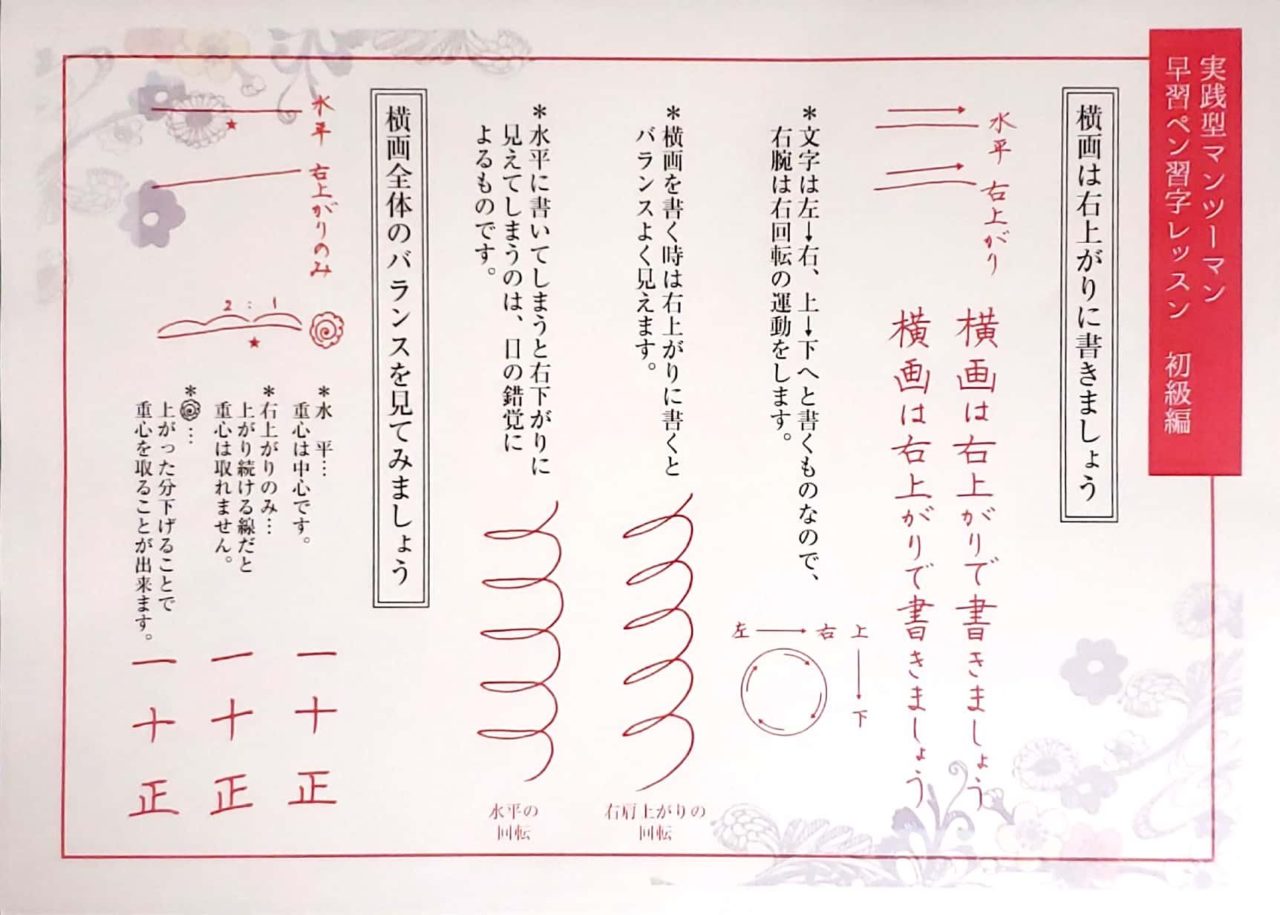 実践型マンツーマン
早習ペン習字レッスン 初級編
横画は右上がりに書きましょう
水平 右上がり
横画は右上がりで書きましょう
横画は右上がりで書きましょう
*文字は左→右、上→下へと書くものなので、
右腕は右回転の運動をします。
左 → 右
上 → 下
*横画を書く時は右上がりに書くと
バランスよく見えます。
右肩上がりの
回転
*水平に書いてしまうと右下がりに
見えてしまうのは、目の錯覚に
よるものです。
水平の
回転
横画全体のバランスを見てみましょう
水平 右上がりのみ
★
2:1
★
*水 平…
重心は中心です。
*右上がりのみ…
上がり続ける線だと
重心は取れません。
*…
上がった分下げることで
重心を取ることが出来ます。
一十正
一十正
一十正